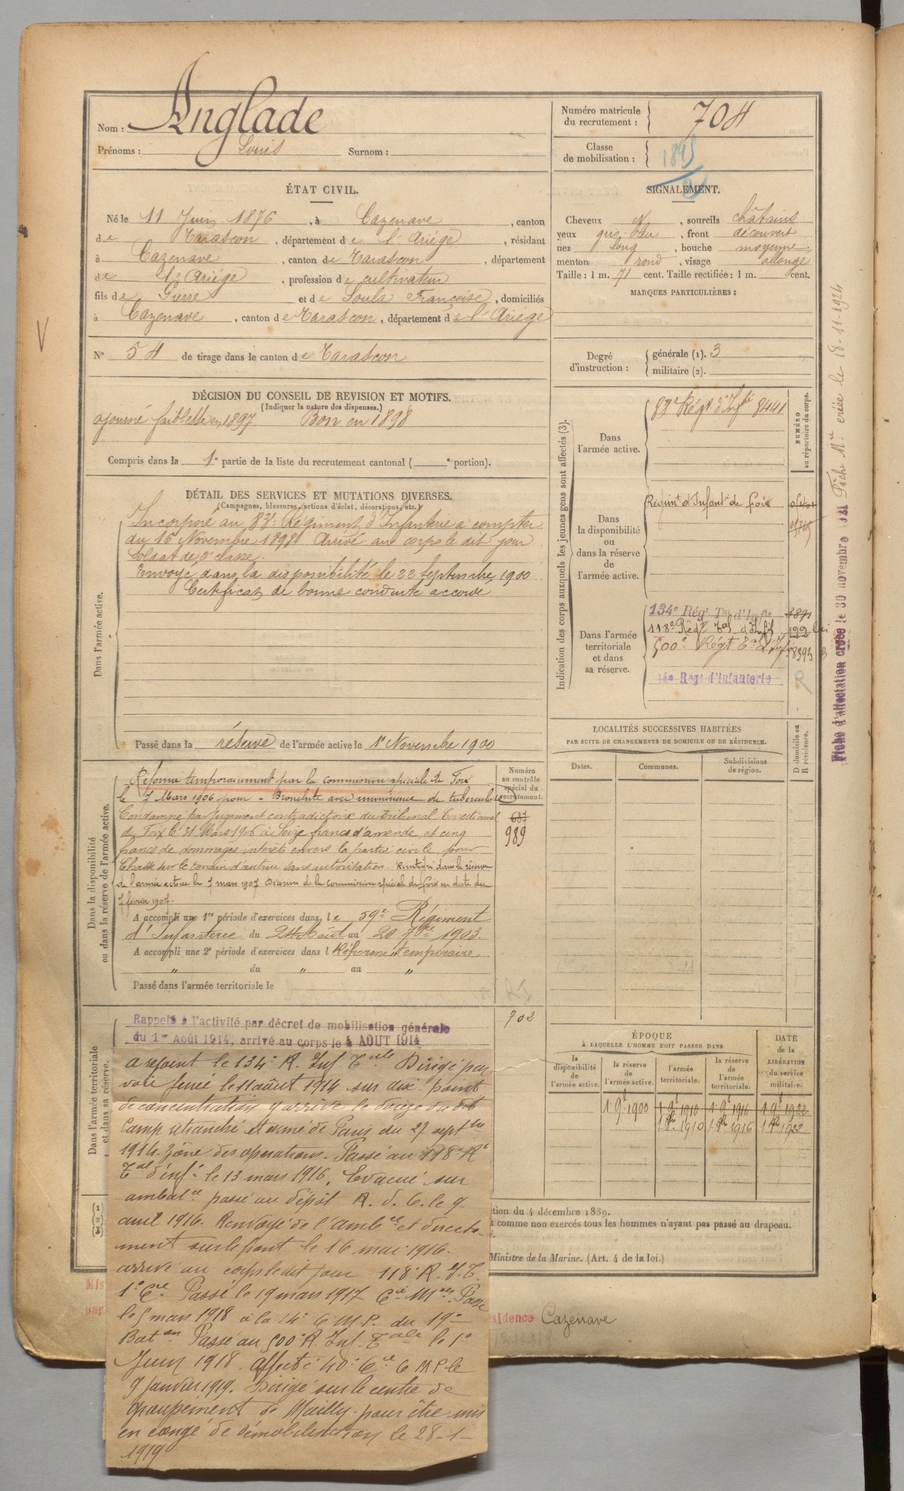 Nom : Anglade
Prénoms : Louis Surnom :
Numéro matricule du recrutement : 704
Classe de mobilisation : 1895
ÉTAT CIVIL.
Né le 11 Juin 1876, à Cazenave, canton
de Tarascon, département de l'Ariège, résidant
à Cazenave, canton de Tarascon, département
de l'Ariège, profession de cultivateur
fils de Pierre et de Soula Françoise, domiciliés
à Cazenave, canton de Tarascon, département de l'Ariège
N° 54 de tirage dans le canton de Tarascon
SIGNALEMENT.
Cheveux et, sourcils châtains
yeux gris-bleu, front découvert
nez long, bouche moyenne
menton rond, visage allongé
Taille : 1 m. 71 cent. Taille rectifiée : 1 m. cent.
MARQUES PARTICULIÈRES :
Degré d'instruction : générale (1). 3
militaire (2).
DÉCISION DU CONSEIL DE REVISION ET MOTIFS.
(Indiquer la nature des dispenses.)
ajourné faiblesse en 1897 Bon en 1898
Compris dans la 1e partie de la liste du recrutement cantonal ( e portion).
DÉTAIL DES SERVICES ET MUTATIONS DIVERSES.
(Campagnes, blessures, actions d'éclat, décorations, etc.)
Dans l'armée active.
Incorporé au 83e Régiment d'Infanterie à compter
du 16 Novembre 1898. Arrivé au corps le dit jour
soldat de 2e classe.
Envoyé dans la disponibilité le 22 Septembre 1900
Certificat de bonne conduite accordé
Passé dans la réserve de l'armée active le 1er Novembre 1900
Indication des corps auxquels les jeunes gens sont affectés (3).
NUMÉRO au répertoire du corps.
Dans l'armée active. 83e Régt d'Infie 8441
Dans la disponibilité ou dans la réserve de l'armée active. Régimt d'Infant de Foix
Dans l'armée territoriale et dans sa réserve. 134e Régt
118e Régt Tal d'Inf
500e Régt
14e Régt d'Infanterie
Fiche Mle créée le 18-11-1924
Fiche d'affectation créée le 30 novembre 1921
LOCALITÉS SUCCESSIVES HABITÉES
PAR SUITE DE CHANGEMENTS DE DOMICILE OU DE RÉSIDENCE.
Dates. Communes. Subdivisions de région. D domicile ou R résidence.
Dans la disponibilité ou dans la réserve de l'armée active.
Numéro au contrôle spécial du recrutement.
989
Réformé temporairement par la commission spéciale de Foix
le 7 Mars 1906 pour - Bronchite avec imminence de tuberculose
Condamné par jugement contradictoire du tribunal Correctionnel
de Foix le 31 Mars 1906 à seize francs d'amende et cinq
francs de dommages intérêts envers la partie civile pour
Chasse sur le terrain d'autrui sans autorisation. Réintégré dans la réserve
de l'armée active le 7 mars 1907 Décision de la commission spéciale de Foix en date du
7 février 1907.
A accompli une 1re période d'exercices dans le 59e Régiment
d'Infanterie du 24 Août au 20 7bre 1903.
A accompli une 2e période d'exercices dans l Réformé temporaire
" du " au "
Passé dans l'armée territoriale le
Dans l'armée territoriale et dans sa réserve.
702
Rappelé à l'activité par décret de mobilisation générale
du 1er Août 1914, arrivé au corps le 4 AOUT 1914
a rejoint le 134e R. Inf Tlle Dirigé par
voie ferrée le 11 août 1914 sur dix points
de concentration y arrive le douze du dit
Camp retranché et armé de Paris du 27 septbre
1914. Zône des opérations. Passé au 118e Rt
Tal d'inf. le 13 mars 1916. Evacué sur
ambulce passé au dépôt R. d. C. le 9
avril 1916. Renvoyé de l'ambce et directe-
ment sur le front le 16 mai 1916.
arrivé au corps le dit jour 118e R.I.T.
1e Cie. Passé le 19 mars 1917 Cie Mses Passé
le 5 mars 1918 à la 14e C.M.P. du 19e
Baton Passé au 500e R. Inf. Tale le 1er
Juin 1918. affecté 40e Cie C.M.P. le
9 janvier 1919. Dirigé sur le centre de
groupement de Mailly pour être mis
en congé de démobilisation le 28-1-
1919
ÉPOQUE
À LAQUELLE L'HOMME DOIT PASSER DANS
la disponibilité de l'armée active. la réserve de l'armée active. l'armée territoriale. la réserve de l'armée territoriale.
DATE de la LIBÉRATION du service militaire.
1 9bre 1900 1 9bre 1910 1 9bre 1916 1 9bre 1922
1 8bre 1910 1 8bre 1916 1 8bre 1922
tion du 4 décembre 1889.
comme non exercés tous les hommes n'ayant pas passé au drapeau.
Ministre de la Marine. (Art. 4 de la loi.)
sidence Cazenave